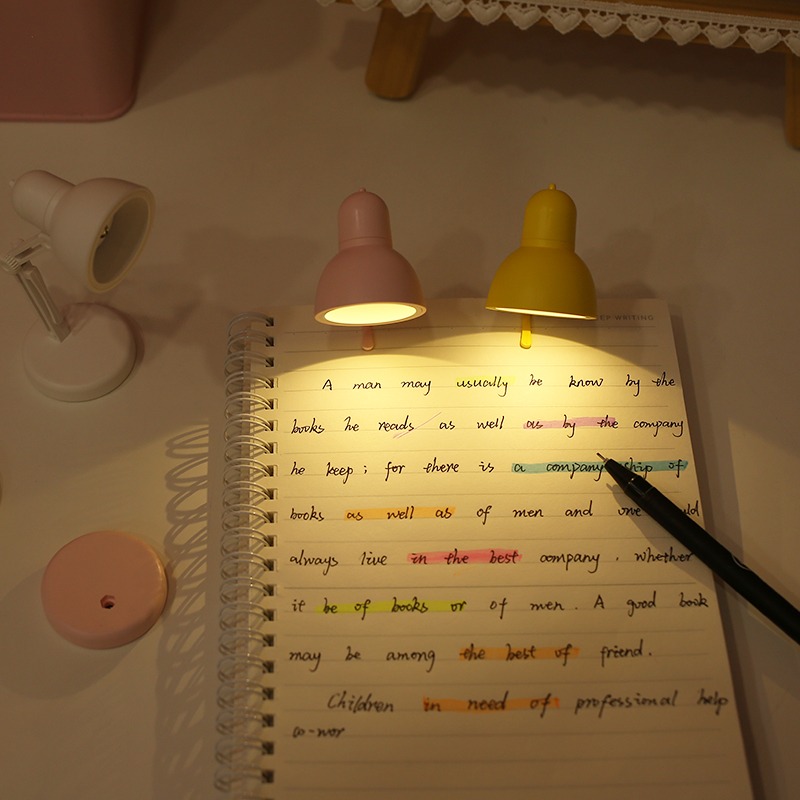 WRITING
A man may usually be know by the
books he reads as well as by the company
he keep ; for there is a company ship of
books as well as of men and one
always live in the best company . whether
it be of books or of men . A good book
may be among the best of friend .
Children in need of professional help
co-wor